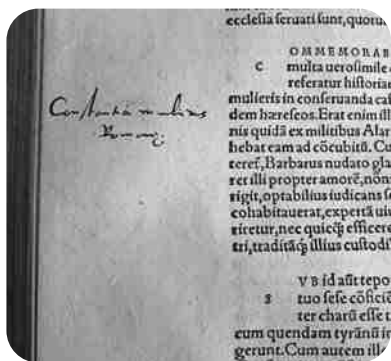 ecclesia seruati sunt, quotu
OMMEMORAB
C multa uerosimile
referatur historia
mulieris in conseruanda cas
dem hæreseos. Erat enim ill
nis quidã ex militibus Alar
hebat eam ad cõcubitũ. Cu
teret, Barbarus nudato gla
ret illi propter amorẽ, nõn
rigit, optabilius iudicans s
cohabitauerat, expertã uir
riretur, nec quicq̃ efficere
tri, traditãq̃ illius custodi
Constantia mulieris
Romanę.
VB id aũt tepo
S tuo sese cõficiẽ
ter charũ esse t
eum quendam tyrãnũ in
gerunt. Cum autem ille